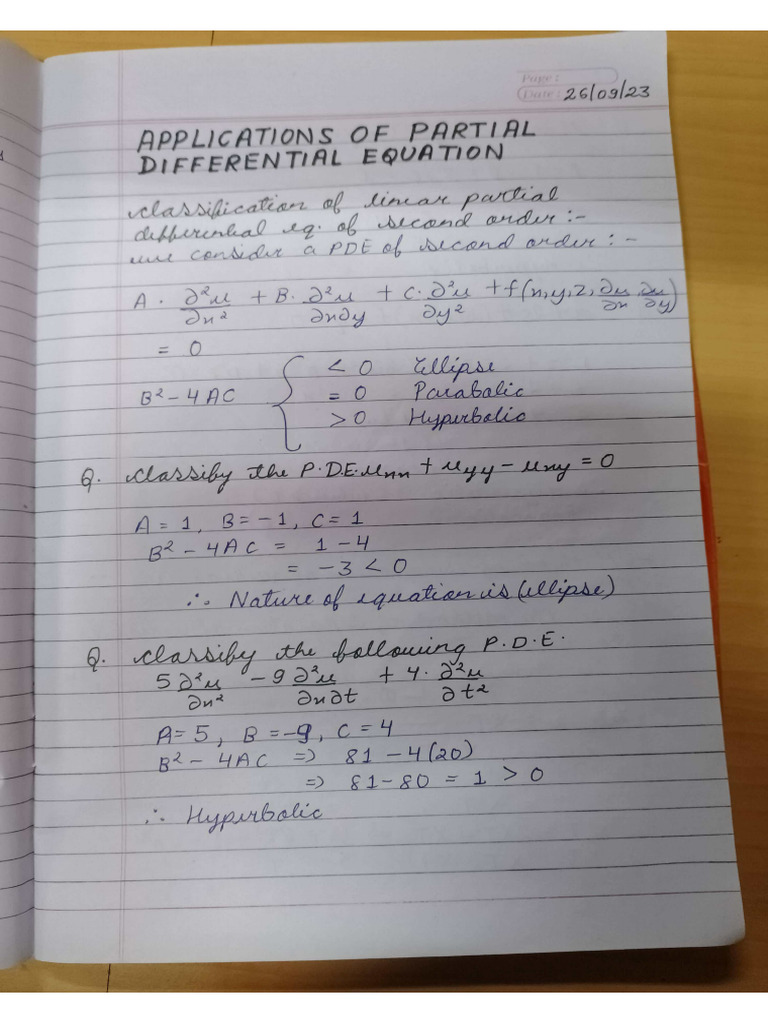 Page :
Date : 26/09/23
APPLICATIONS OF PARTIAL
DIFFERENTIAL EQUATION
classification of linear partial
differential eq. of second order :-
we consider a PDE of second order : -
A . ∂²u/∂x² + B. ∂²u/∂x∂y + C. ∂²u/∂y² + f(x,y,z, ∂u/∂x, ∂u/∂y)
= 0
B² - 4AC { < 0 Ellipse
= 0 Parabolic
> 0 Hyperbolic
Q. classify the P.D.E. uxx + uyy - uxy = 0
A = 1, B = -1, C = 1
B² - 4AC = 1 - 4
= -3 < 0
∴ Nature of equation is (ellipse)
Q. classify the following P.D.E.
5 ∂²u/∂x² - 9 ∂²u/∂x∂t + 4. ∂²u/∂t²
A = 5, B = -9, C = 4
B² - 4AC => 81 - 4(20)
=> 81 - 80 = 1 > 0
∴ Hyperbolic